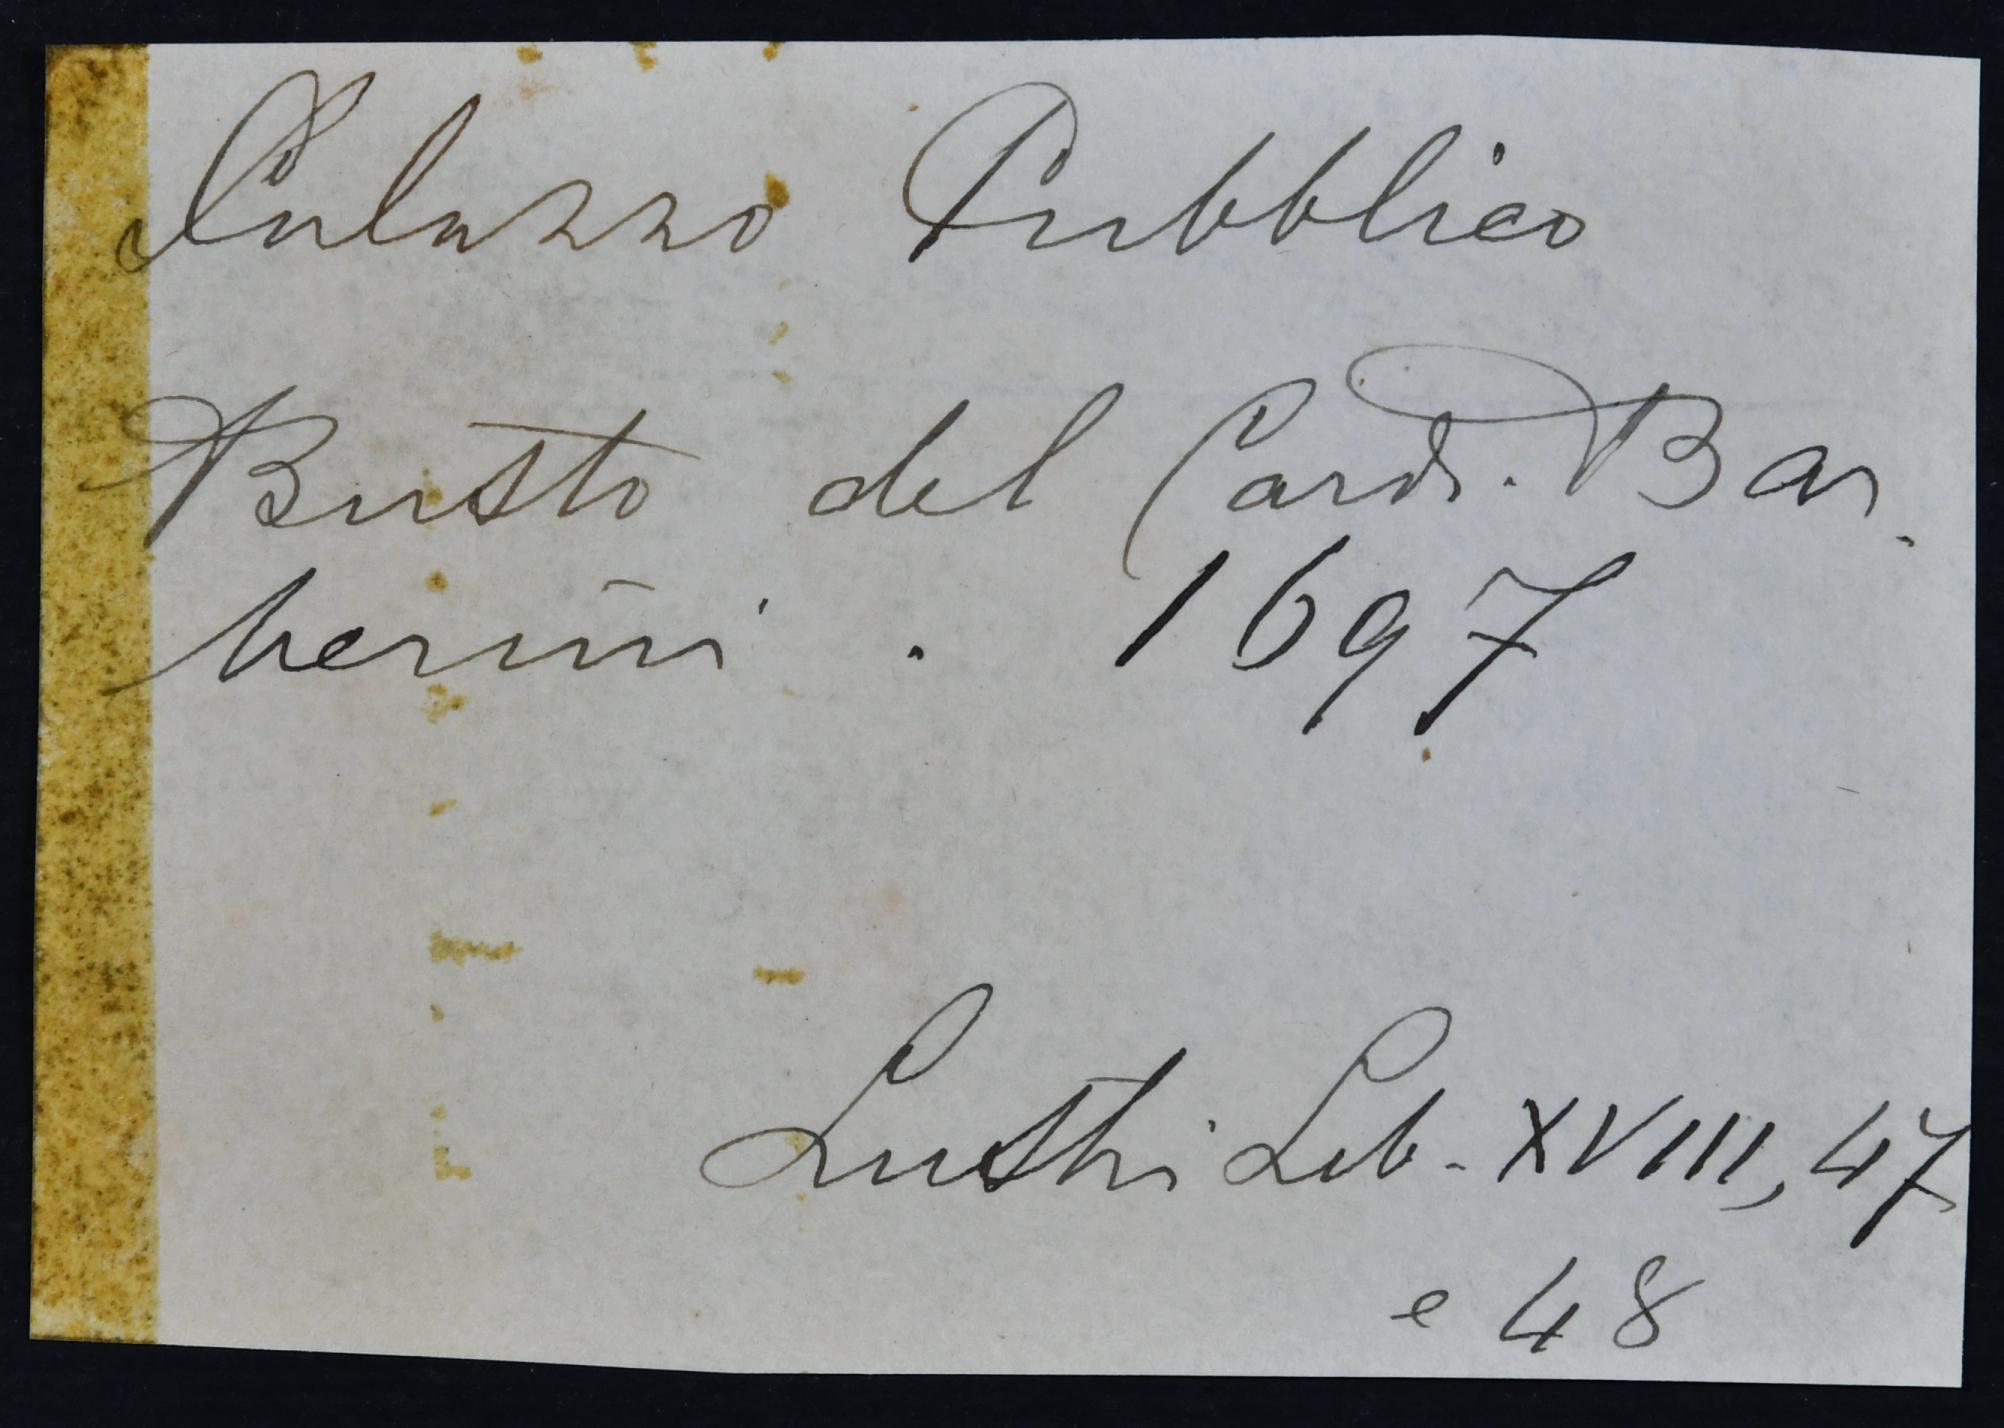 Palazzo Pubblico
Busto del Card. Bar.
berini . 1697
Lustri Lib. XVIII, 47
e 48